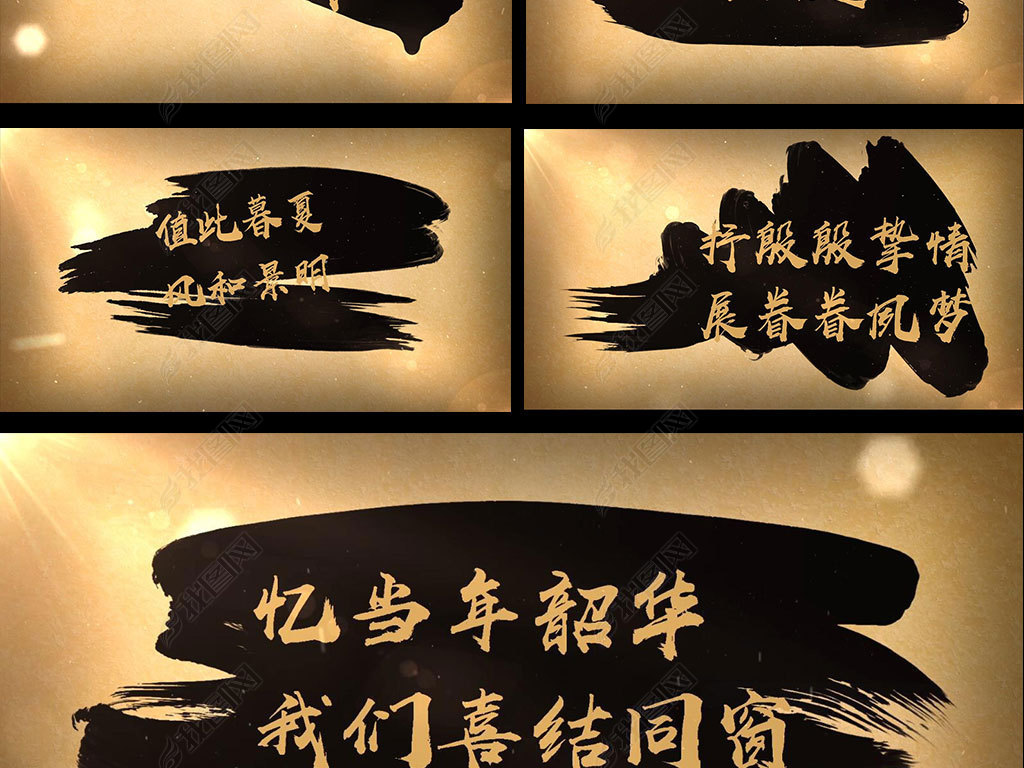 值此暮夏
风和景明
抒殷殷挚情
展眷眷夙梦
忆当年韶华
我们喜结同窗